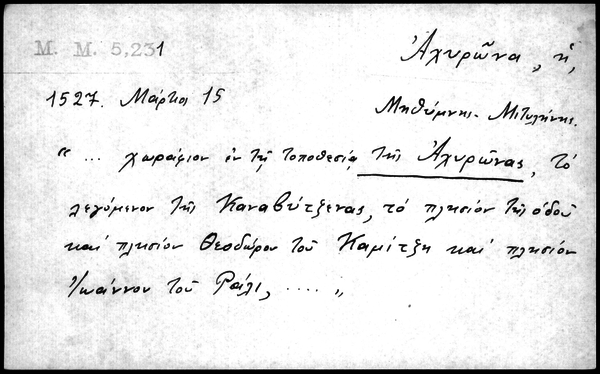 Μ. Μ. 5,231
Ἀχυρῶνα, ἡ,
1527. Μάρτιος 15
Μηθύμνης - Μιτυλήνης.
“ ... χωράφιον ἐν τῇ τοποθεσίᾳ τῆς Ἀχυρῶνας, τὸ
λεγόμενον τῆς Καναβύτζενας, τὸ πλησίον τῆς ὁδοῦ
καὶ πλησίον Θεοδώρου τοῦ Καμίτζη καὶ πλησίον
Ἰωάννου τοῦ Ράλι, ..... „